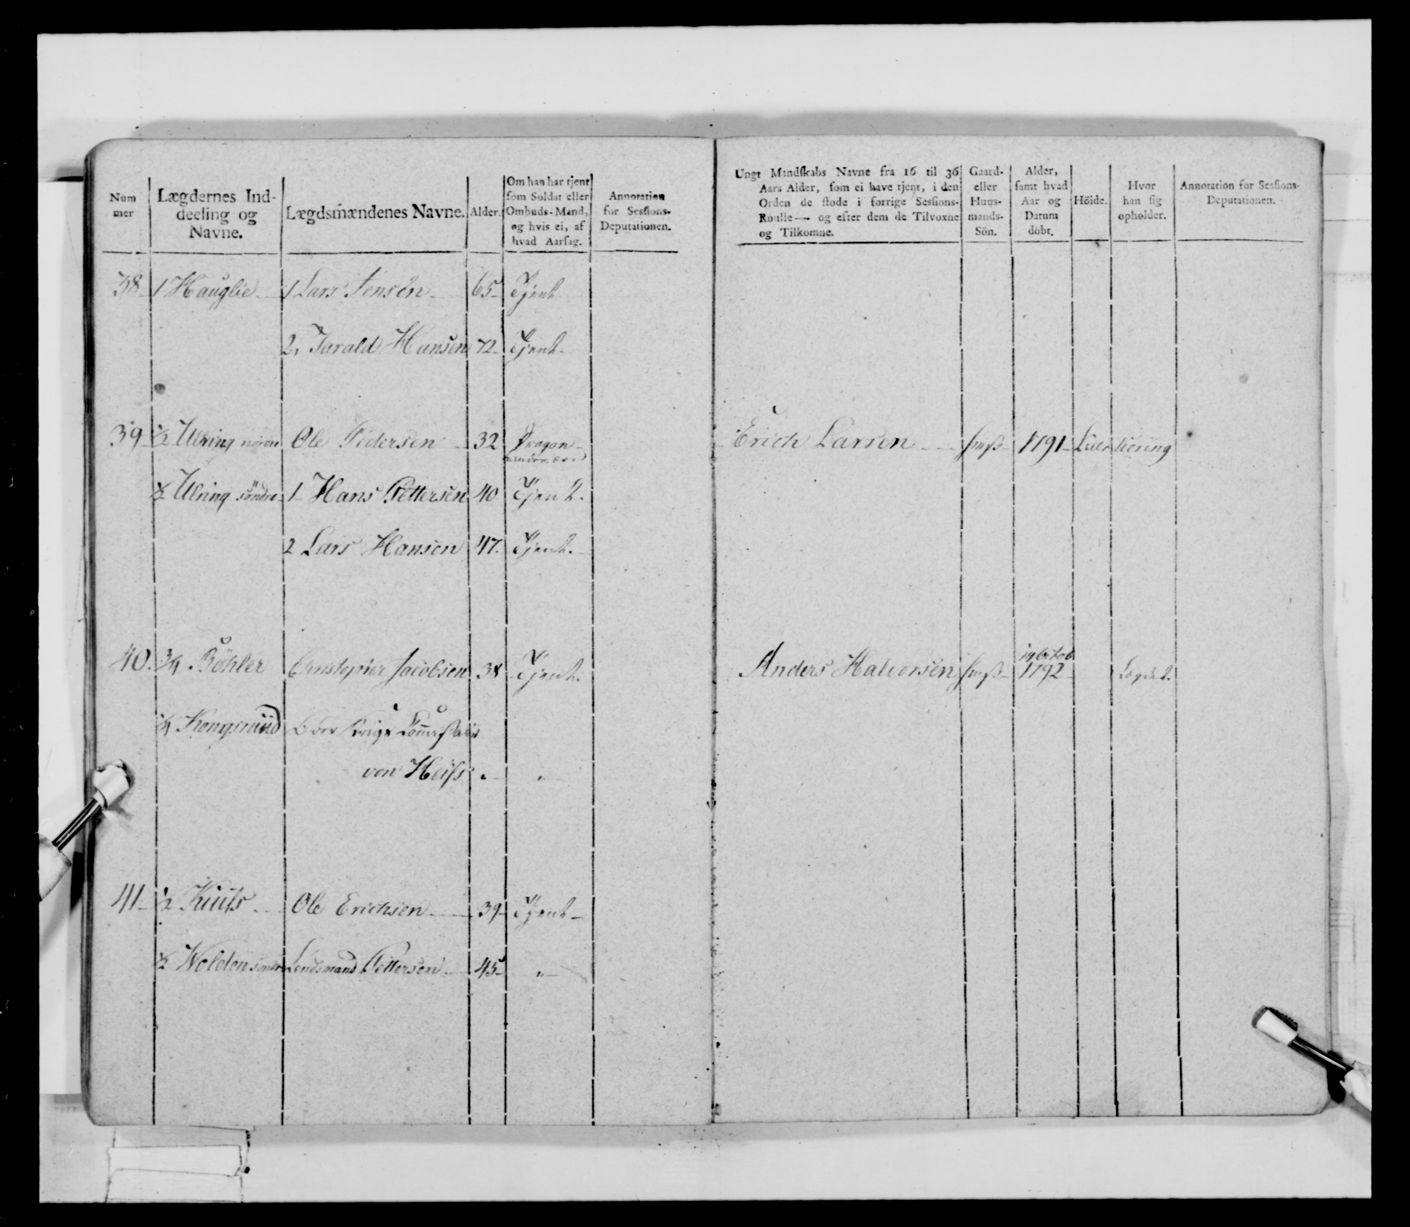 Num
mer
Lægdernes Ind-
deeling og
Navne.
Lægdsmændenes Navne.
Alder.
Om han har tjent
som Soldat eller
Ombuds-Mand,
og hvis ei, af
hvad Aarsag.
Annotation
for Sessions-
Deputationen.
Ungt Mandskabs Navne fra 16 til 36
Aars Alder, som ei have tjent, i den
Orden de stode i forrige Sessions-
Roulle — og efter dem de Tilvoxne
og Tilkomne.
Gaard-
eller
Huus-
mands-
Sön.
Alder,
samt hvad
Aar og
Datum
döbt.
Höide.
Hvor
han sig
opholder.
Annotation for Sessions-
Deputationen.
38 1 Hauglie 1 Lars Jensen 65 Tjent
2, Harald Hansen 72 Tjent
39 ½ Ulring nordre Ole Pedersen 32 Dragon
Erich Larsen 1791
½ Ulring söndre 1 Hans Pettersen 40 Tjent
2 Lars Hansen 47 Tjent.
40. ¾ Böhler Christopher Jacobsen 38 Tjent.
Anders Halvorsen 1792
¼ Kongsruud
von Heiss
41 ½ Kiuts Ole Erichsen 39 Tjent
½ Wolden söndre Lendsmand Pettersen 45 "